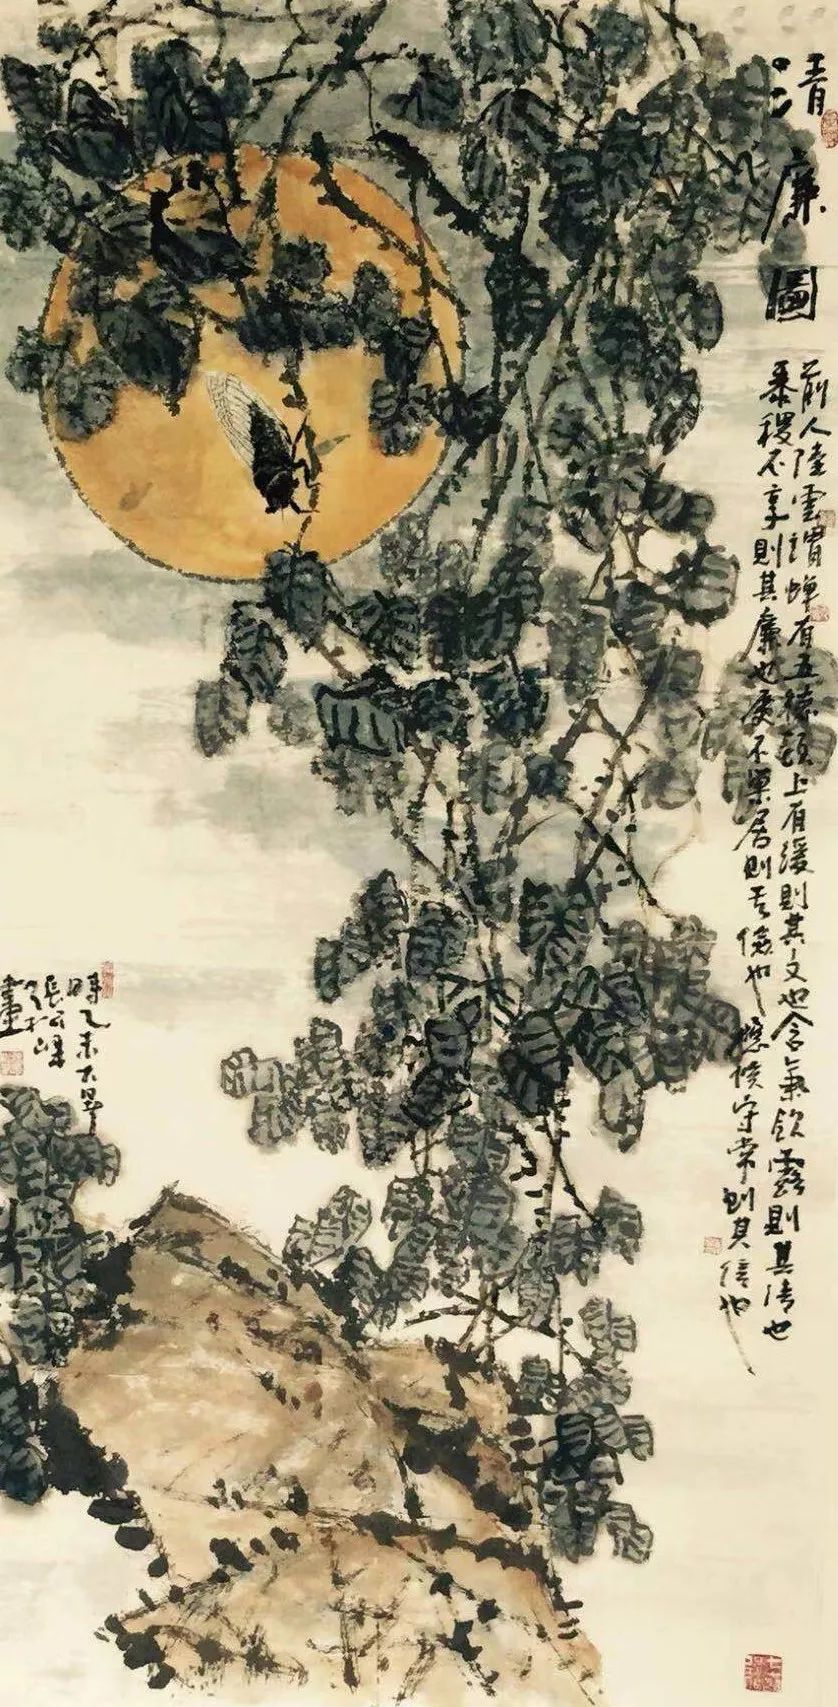 清廉圖
前人陸雲謂蟬有五德頭上有緌則其文也含氣飲露則其清也
黍稷不享則其廉也處不巢居則其儉也應候守常則其信也
時乙未大暑
張
畫